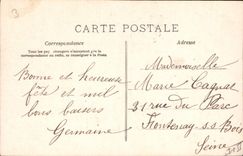 3
CARTE POSTALE
Correspondance
Adresse
Tous les pays étrangers n'acceptent pas de
correspondance au recto, se renseigner à la Poste
Bonne et heureuse
fête et mil
bons baisers
Germaine
Mademoiselle
Marie Cagnat
31 rue du Parc
Fontenay s.s Bois
Seine